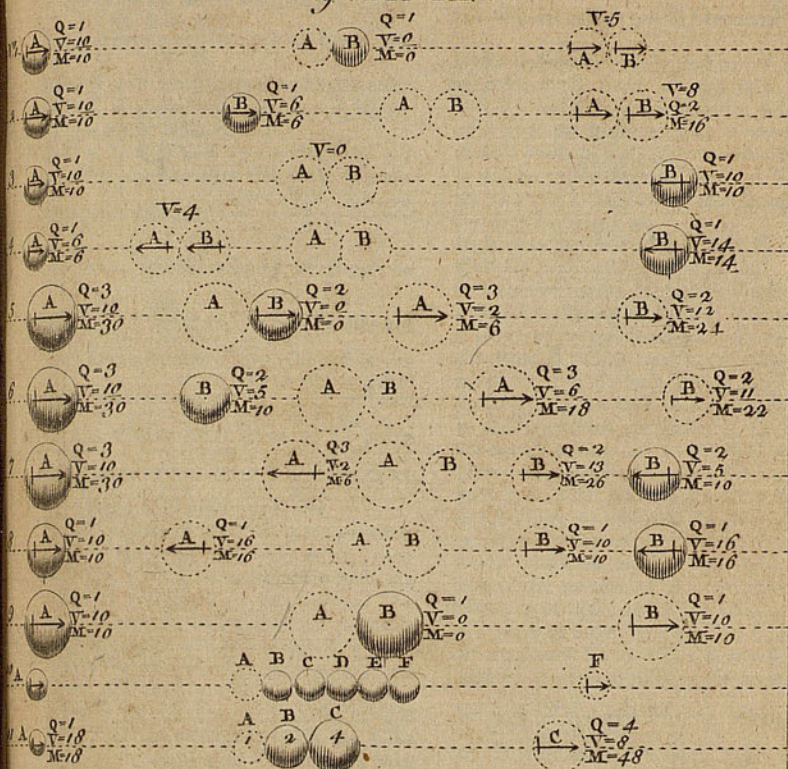 A Q=1 V=10 M=10 A B Q=1 V=0 M=0 V=5 A B
A Q=1 V=10 M=10 B Q=1 V=6 M=6 A B A B V=8 Q=2 M=16
3 A Q=1 V=10 M=10 V=0 A B B Q=1 V=10 M=10
4 A Q=1 V=6 M=6 V=4 A B A B B Q=1 V=14 M=14
5 A Q=3 V=10 M=30 A B Q=2 V=0 M=0 A Q=3 V=2 M=6 B Q=2 V=12 M=24
6 A Q=3 V=10 M=30 B Q=2 V=5 M=10 A B A Q=3 V=6 M=18 B Q=2 V=11 M=22
7 A Q=3 V=10 M=30 A Q3 V2 M6 A B B Q=2 V=13 M=26 B Q=2 V=5 M=10
8 A Q=1 V=10 M=10 A Q=1 V=16 M=16 A B B Q=1 V=10 M=10 B Q=1 V=16 M=16
9 A Q=1 V=10 M=10 A B Q=1 V=0 M=0 B Q=1 V=10 M=10
A A B C D E F F
A Q=1 V=18 M=18 A 1 B 2 C 4 C Q=4 V=8 M=48